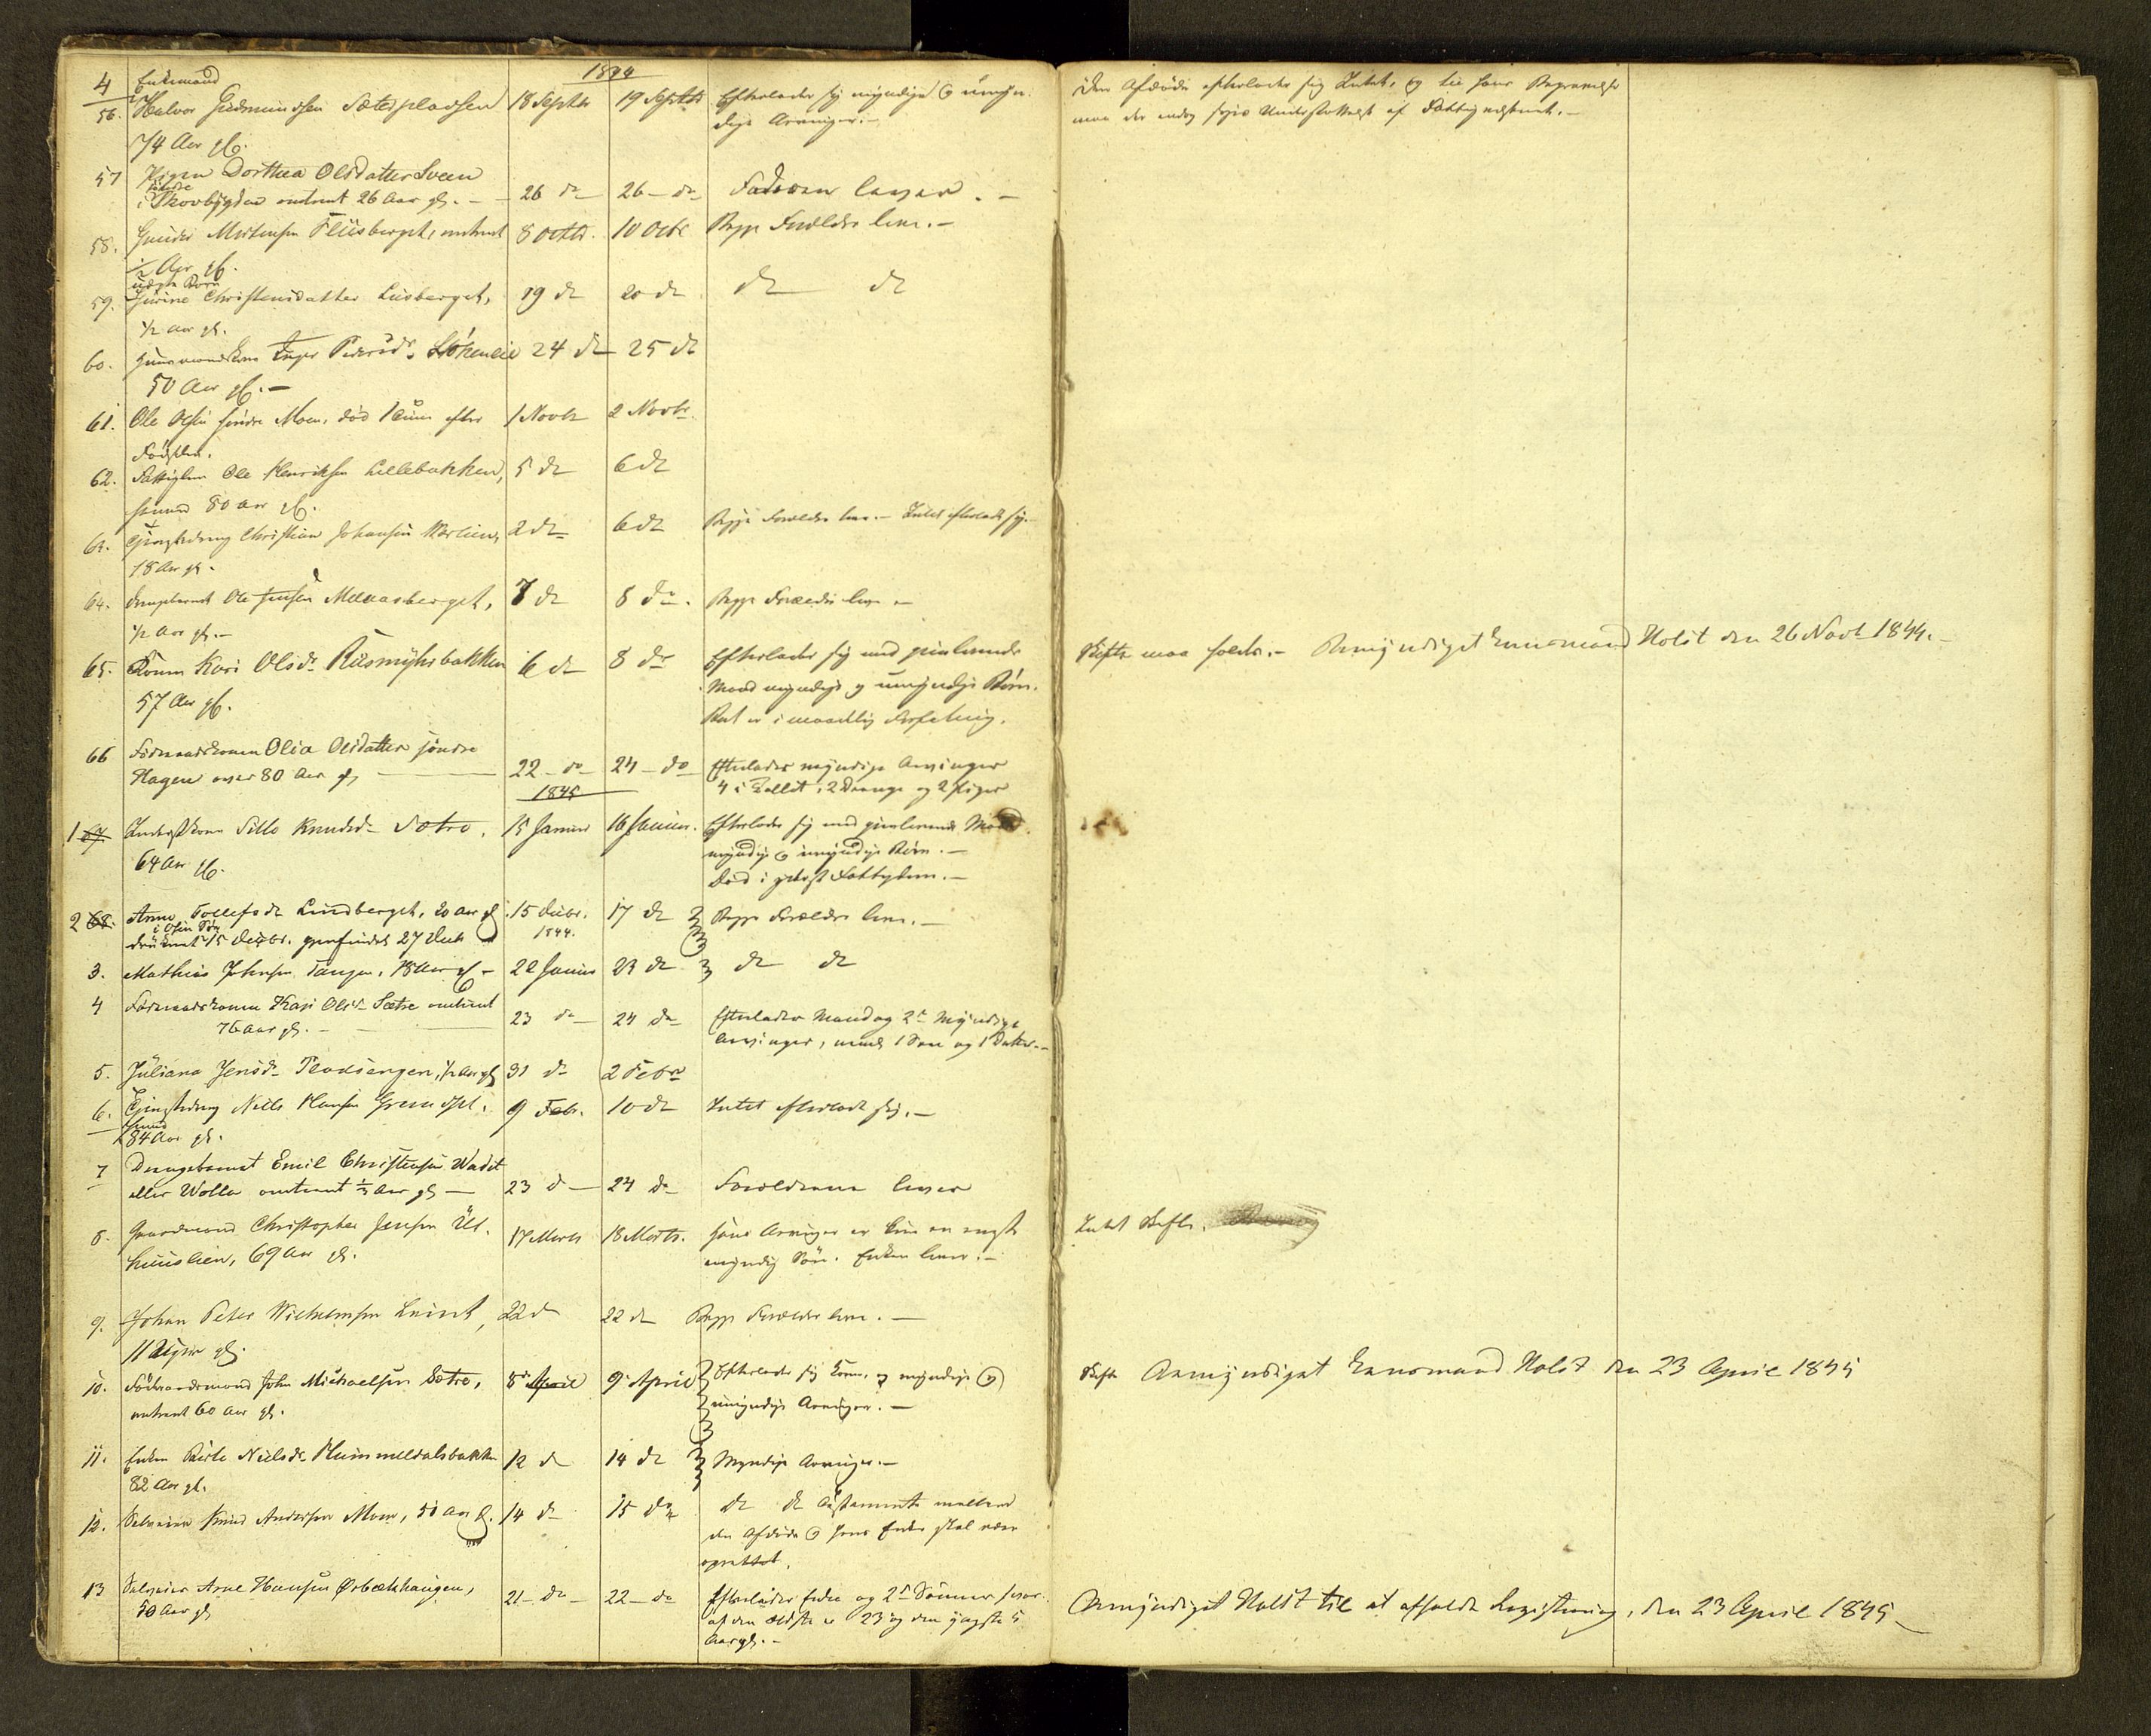 4
1844
56. Enkemand
Halvor Gudmundsen Sæterpladsen 18 Septbr 19 Septbr Efterlader sig myndige & umyn-
dige Arvinger. -
74 Aar gl.
Den Afdøde efterlader sig Intet, og til hans Begravelse
maa der endog søges Understøttelse af Fattigvæsenet. -
57 Pigen Dorthea Olsdatter Sveen
søndre
i Skovbygden omtrent 26 Aar gl. - 26 do 26 - do Faderen lever. -
58. Gunder Mortensen Fliisberget, omtrent 8 Octbr. 10 Octbr Begge Forældre leve. -
1/2 Aar gl.
uægte Barn
59. Gurine Christensdatter Lusberget, 19 do 20 do do do
1/2 Aar gl.
60. Huusmandskone Inger Pedersdr. Løkenlie 24 do 25 do
50 Aar gl. -
61. Ole Olsen søndre Moen, død 1 Time efter 1 Novbr 2 Novbr.
Fødselen.
62. Fattiglem Ole Henriksen Lillebakken, 5 do 6 do
80 Aar gl.
63. Christian Johansen 2 do 6 do Begge Forældre leve. - Intet efterladt sig. -
18 Aar gl.
64. Drengebarnet Ole Jensen Maaasberget, 7 do 8 do. Begge Forældre leve -
1/2 Aar gl. -
65. Konen Kari Olsdr. Kiismyhrbakken 6 do 8 do Efterlader sig med gjenlevende
57 Aar gl. Mand myndige og umyndige Børn.
Boet er i maadelig Forfatning.
Skifte maa holdes. - Bemyndiget Lensmand Holst den 26 Novbr 1844. -
66 Føderaadskonen Olia Olsdatter søndre
Hagen over 80 Aar gl. 22 - do 24 - do Efterlader myndige Arvinger
4 i Tallet, 2 Drenge og 2 Piger
1845
1 67. Knudsdr. Sotro, 15 Januar 16 Januar. Efterlader sig med gjenlevende Mand
64 Aar gl. myndige & umyndige Børn. -
Død i yderst Fattigdom. -
2 68. Anne Tollefsdr. Lindberget, 20 Aar gl. 15 Decbr. 17 do Begge Forældre leve. -
i Osen Sø
druknet 15 Decbr. gjenfundet 27 1844.
3. Mathias Johnsen Tangen, Aar gl. - 22 Januar 23 do do do
4 Føderaadskonen Kari Olsdr. Sætre omtrent
76 Aar gl. - 23 do 24 do Efterlader Mand og 2de Myndige
Arvinger, nemlig 1 Søn og 1 Datter. -
5. Juliana Jensdr. 1/2 Aar gl. 31 do 2 Febr.
6. Niels Hansen 9 Febr. 10 do Intet efterladt sig. -
84 Aar gl.
7 Drengebarnet Emil Christensen Wadet
eller Wolla omtrent 1/2 Aar gl. - 23 do 24 do Forældrene lever
8. Gaardmand Christopher Jensen Ul- 17 Marts 18 Marts. Hans Arvinger er kun en
huuslien, 69 Aar gl. myndig Søn. Enken lever. -
Intet Skifte.
9. Johan Peter Wilhelmsen 22 do 22 do Begge Forældre leve. -
11 Uger gl.
10. Føderaadsmand John Michaelsen Sotro, 8 April 9 April Efterlader sig Kone, og myndige &
omtrent 60 Aar gl. umyndige Arvinger. -
Skifte Bemyndiget Lensmand Holst den 23 April 1845
11. Enken Berte Nielsdr. Hummeldalsbakken 12 do 14 do Myndige Arvinger. -
82 Aar gl.
12. Selveier Knud Andersen Moen, 50 Aar gl. 14 do 15 do do do Testamente mellem
den Afdøde & hans Enke skal være
oprettet.
13 Selveier Arne Hansen Ørbækhaugen,
50 Aar gl. 21 - do - 22 - do Efterlader Enke og 2de Sønner hvor-
af den ældste er 23 og den yngste 5
Aar gl. -
Bemyndiget Holst til at afholde Registrering, den 23 April 1845